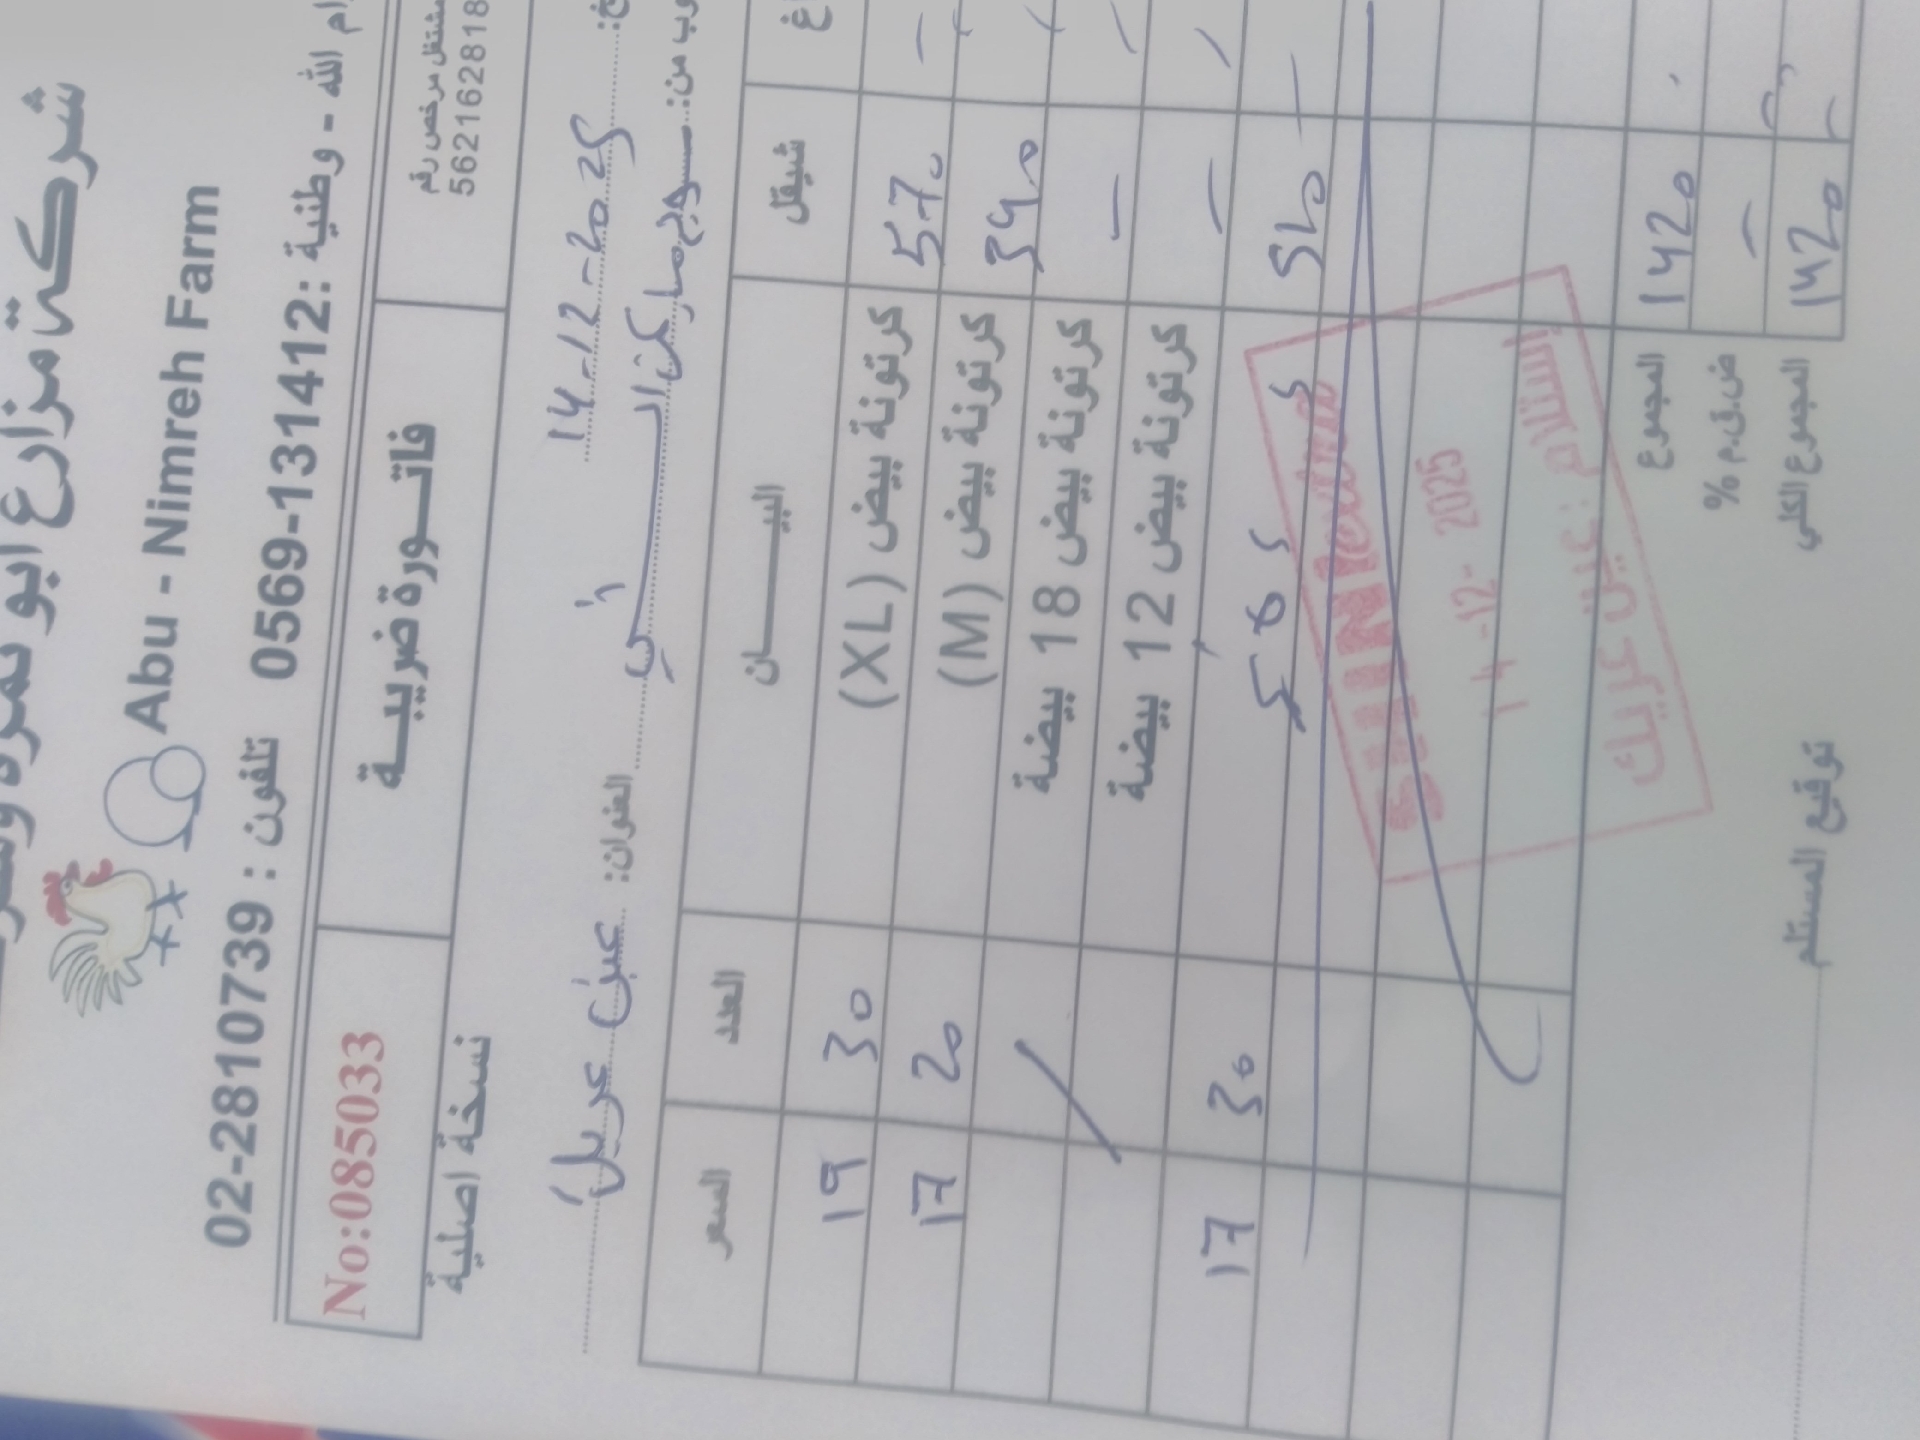 شركة مزارع ابو نمره
Abu - Nimreh Farm
رام الله - وطنية : 0569-131412 تلفون : 02-2810739
مشتغل مرخص رقم
562162818
فاتورة ضريبية
No:085033
نسخة اصلية
14-12-2025
العنوان: عين عريك
شيقل البيان العدد السعر
570 كرتونة بيض (XL) 30 19
340 كرتونة بيض (M) 20 17
- كرتونة بيض 18 بيضة
- كرتونة بيض 12 بيضة
510 30 17
14-12-2025
إستلام : عين عريك
المجموع 1420
ض.ق.م % -
المجموع الكلي 1420
توقيع المستلم